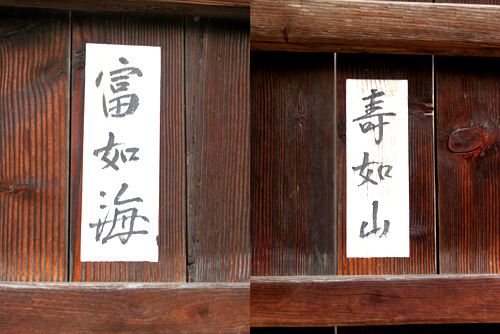 富如海
壽如山